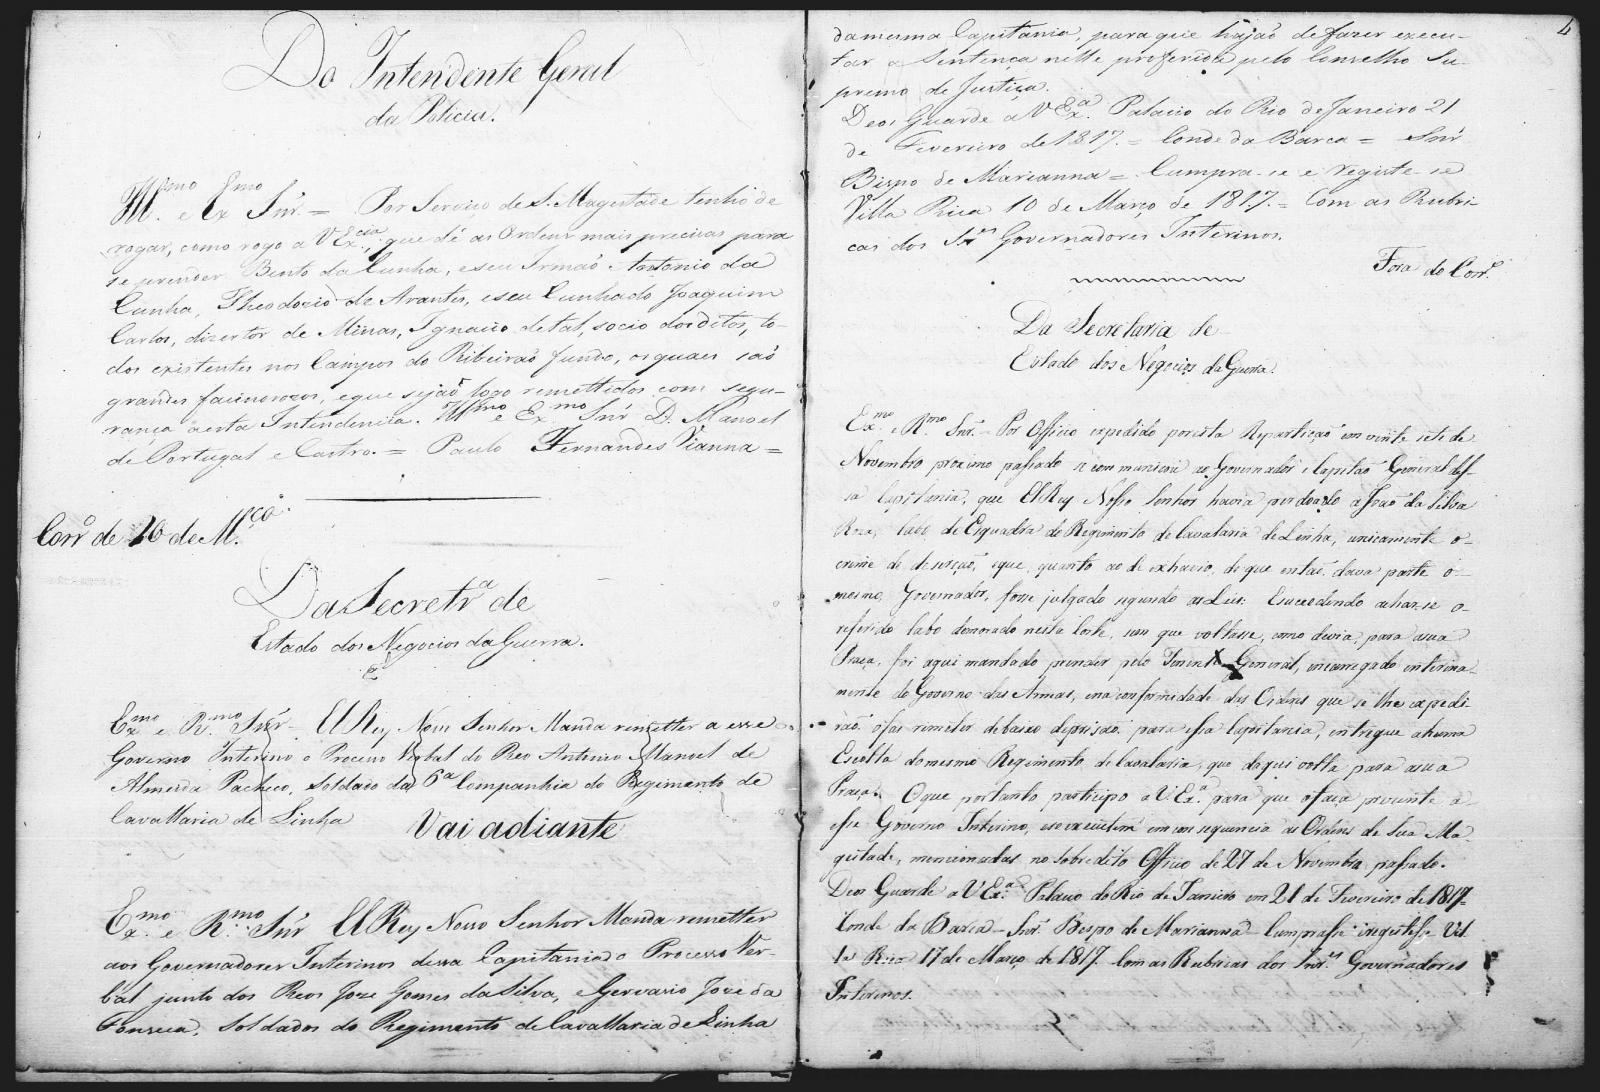 Do Intendente Geral
da Policia.
Ill.mo e Ex.mo Snr. = Por Serviço de S. Magestade tenho de
rogar, como rogo a V Ex.cia, que dê as Ordens mais precizas para
se prender Bento da Cunha, e seu Irmaõ Antonio da
Cunha, Theodozio de Arantes, e seu Cunhado Joaquim
Carlos, dizertor de Minas, Ignacio de tal, socio dos ditos, to-
dos existentes nos Campos do Ribeiraõ fundo, os quaes saõ
grandes facinorozos, e que sejaõ logo remettidos com segu-
rança a esta Intendencia. Ill.mo e Ex.mo Snr D. Manoel
de Portugal e Castro. = Paulo Fernandes Vianna =
Corr.o de 16 de M.ço
Da Secretr.a de
Estado dos Negocios da Guerra.
Ex.mo e R.mo Snr - El Rey Nosso Senhor Manda remetter a esse
Governo Interino o Processo Verbal do Reo Antonio Manoel de
Almeida Pacheco, Soldado da 6.a Companhia do Regimento de
Cavallaria de Linha Vai adiante
Ex.mo e R.mo Snr El Rey Nosso Senhor Manda remetter
aos Governadores Interinos dessa Capitania o Processo Ver-
bal junto dos Reos Joze Gomes da Silva, e Gervasio Joze da
Fonseca, Soldados do Regimento de Cavallaria de Linha
4
da mesma Capitania, para que hajaõ de fazer execu-
tar a Sentença nelle proferida pelo Conselho Su-
premo de Justiça.
Deos Guarde a V Ex.a Palacio do Rio de Janeiro 21
de Fevereiro de 1817. = Conde da Barca = Snr
Bispo de Marianna = Cumpra-se e registe-se
Villa Rica 10 de Março de 1817. = Com as Rubri-
cas dos Snr.es Governadores Interinos.
Fora do Corr.o
Da Secretaria de
Estado dos Negocios da Guerra.
Ex.mo e R.mo Snr. - Por Officio expedido por esta Repartiçaõ em vinte sete de
Novembro proximo passado se communicou ao Governador e Capitaõ General des-
sa Capitania, que El Rey Nosso Senhor havia perdoado a Joaõ da Silva
Roza, Cabo de Esquadra do Regimento de Cavalaria de Linha, unicamente o
crime de deserçaõ, e que, quanto ao de extravio, de que entaõ dava parte o
mesmo Governador, fosse julgado segundo as Leis: E succedendo achar-se o
referido Cabo demorado nesta Corte, sem que voltasse, como devia, para a sua
Praça, foi aqui mandado prender pelo Tenente General, encarregado interina-
mente do Governo das Armas, e na conformidade das Ordens que se lhe expedi-
raõ, o faz remeter debaixo de prizaõ para essa Capitania, entregue a huma
Escolta do mesmo Regimento de Cavalaria, que daqui volta para a sua
Praça. O que portanto participo a V. Ex.a para que o faça prezente a
esse Governo Interino, e se executem em consequencia as Ordens de Sua Ma-
gestade, mencionadas no sobredito Officio de 27 de Novembro passado.
Deos Guarde a V Ex.a Palacio do Rio de Janeiro em 21 de Fevereiro de 1817-
Conde da Barca - Snr. Bispo de Marianna - Cumprasse e registesse Vil-
la Rica 17 de Março de 1817. Com as Rubricas dos Snr.es Governadores
Interinos.